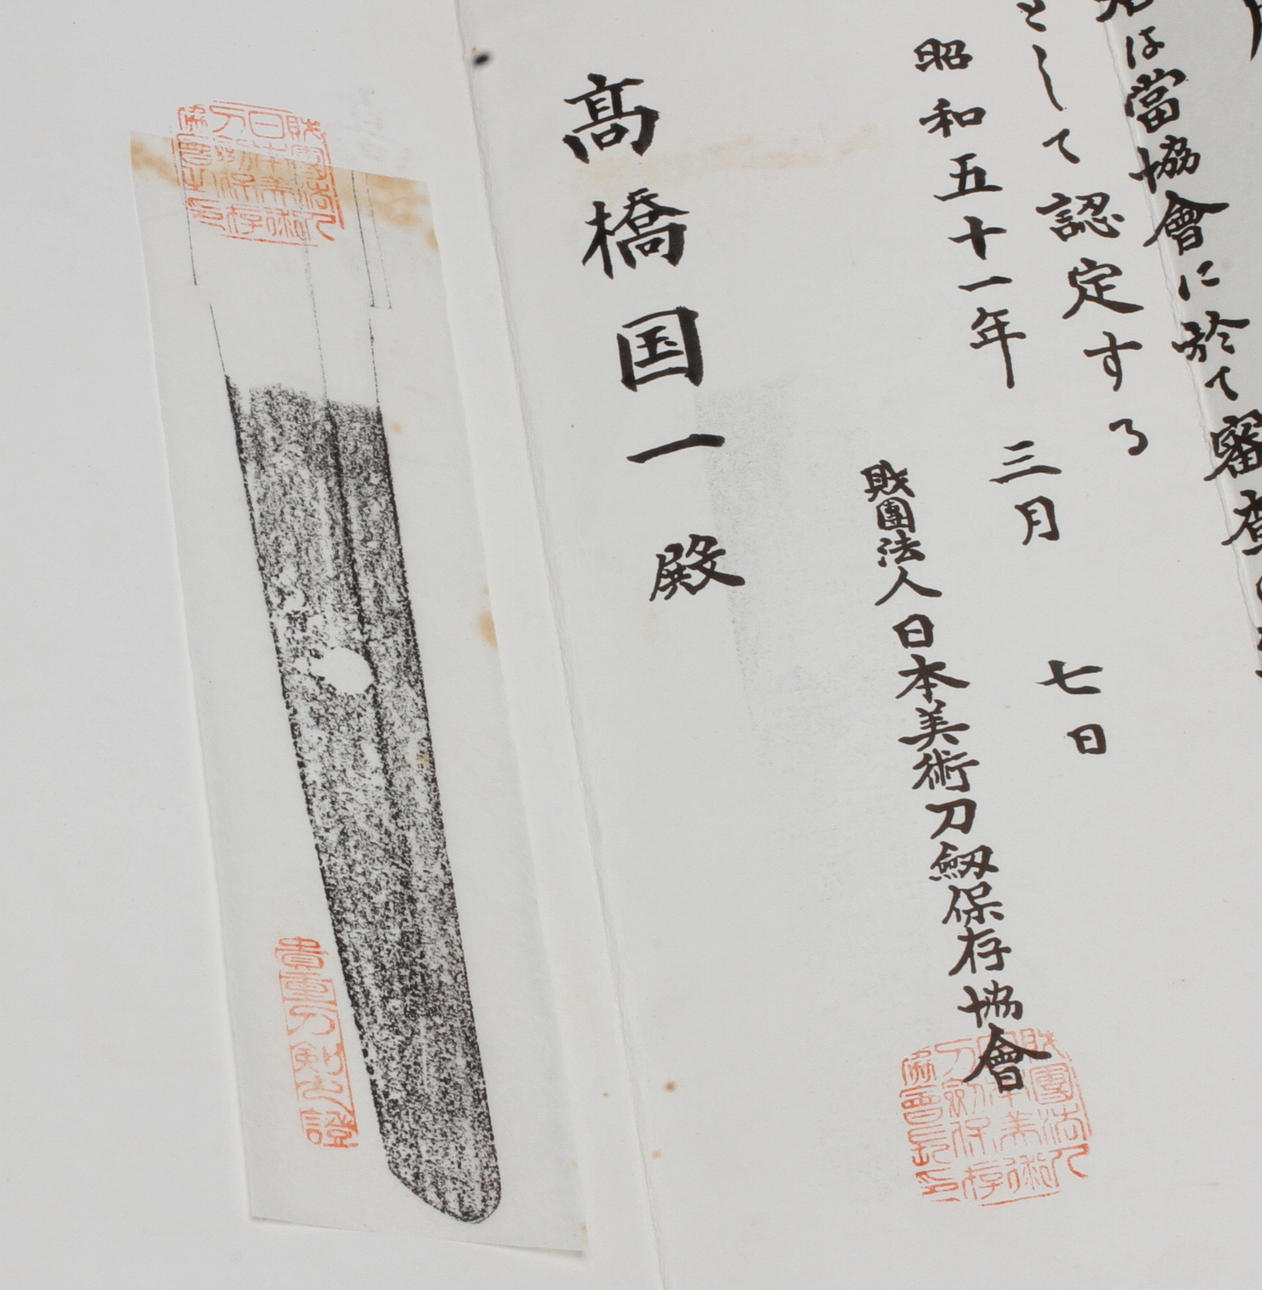 は當協會に於て審査の
として認定する
昭和五十一年 三月 七日
財團法人日本美術刀劔保存協會
髙橋国一殿
財團法人日本美術刀劔保存協會長印
財團法人日本美術刀劔保存協會長印
貴重刀剣之證